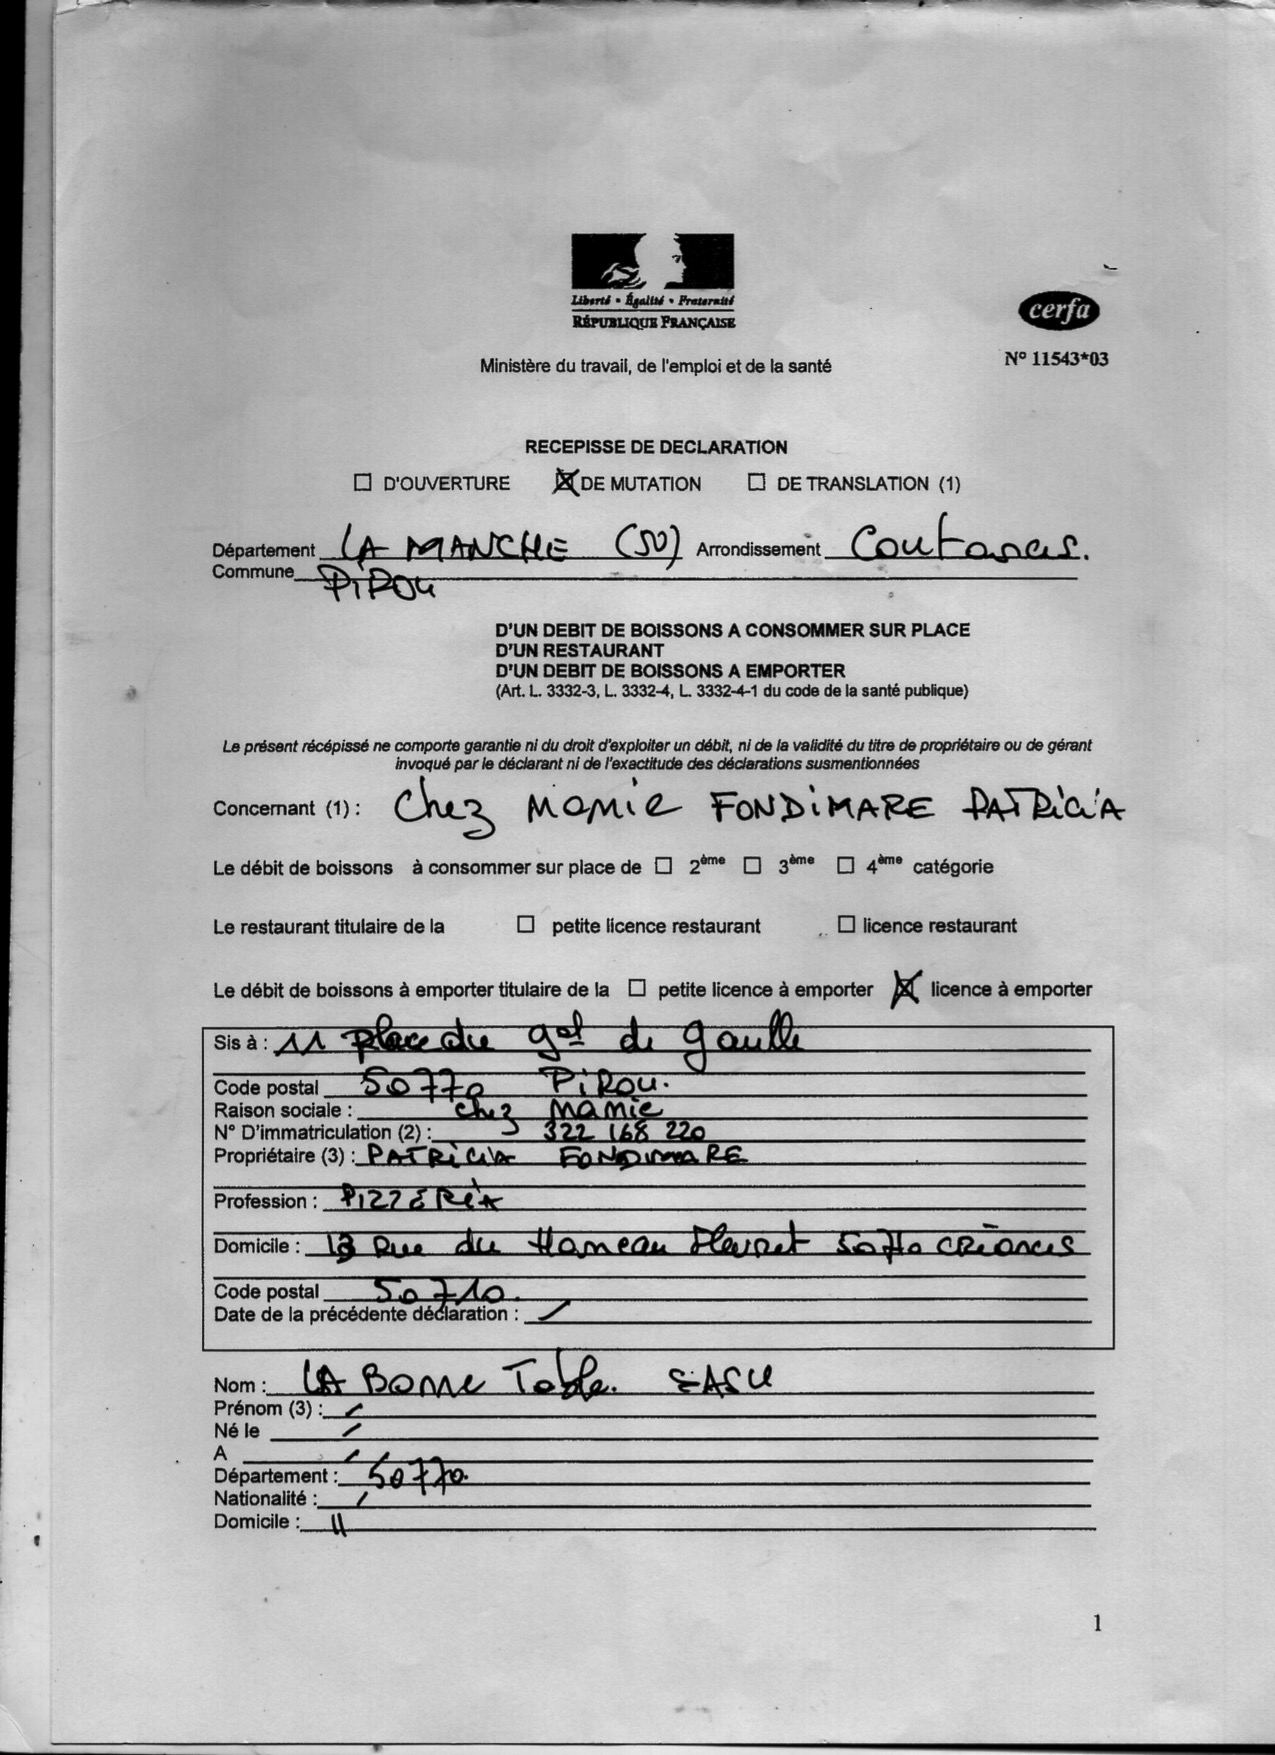 Liberté • Égalité • Fraternité
RÉPUBLIQUE FRANÇAISE
cerfa
N° 11543*03
Ministère du travail, de l'emploi et de la santé
RECEPISSE DE DECLARATION
☐ D'OUVERTURE ☒ DE MUTATION ☐ DE TRANSLATION (1)
Département LA MANCHE (50) Arrondissement Coutances.
Commune PIROU
D'UN DEBIT DE BOISSONS A CONSOMMER SUR PLACE
D'UN RESTAURANT
D'UN DEBIT DE BOISSONS A EMPORTER
(Art. L. 3332-3, L. 3332-4, L. 3332-4-1 du code de la santé publique)
Le présent récépissé ne comporte garantie ni du droit d'exploiter un débit, ni de la validité du titre de propriétaire ou de gérant
invoqué par le déclarant ni de l'exactitude des déclarations susmentionnées
Concernant (1) : Chez Mamie FONDIMARE PATRICIA
Le débit de boissons à consommer sur place de ☐ 2ème ☐ 3ème ☐ 4ème catégorie
Le restaurant titulaire de la ☐ petite licence restaurant ☐ licence restaurant
Le débit de boissons à emporter titulaire de la ☐ petite licence à emporter ☒ licence à emporter
Sis à : 11 Place du gal de gaulle
Code postal 50770 PIROU.
Raison sociale : chez Mamie
N° D'immatriculation (2) : 322 168 220
Propriétaire (3) : PATRICIA FONDIMARE
Profession : PIZZERIA
Domicile : 13 Rue du Hameau 50710 CRÉANCES
Code postal 50710.
Date de la précédente déclaration : /
Nom : LA Bonne Table. SASU
Prénom (3) : /
Né le /
A /
Département : 50770.
Nationalité : /
Domicile : 11
1